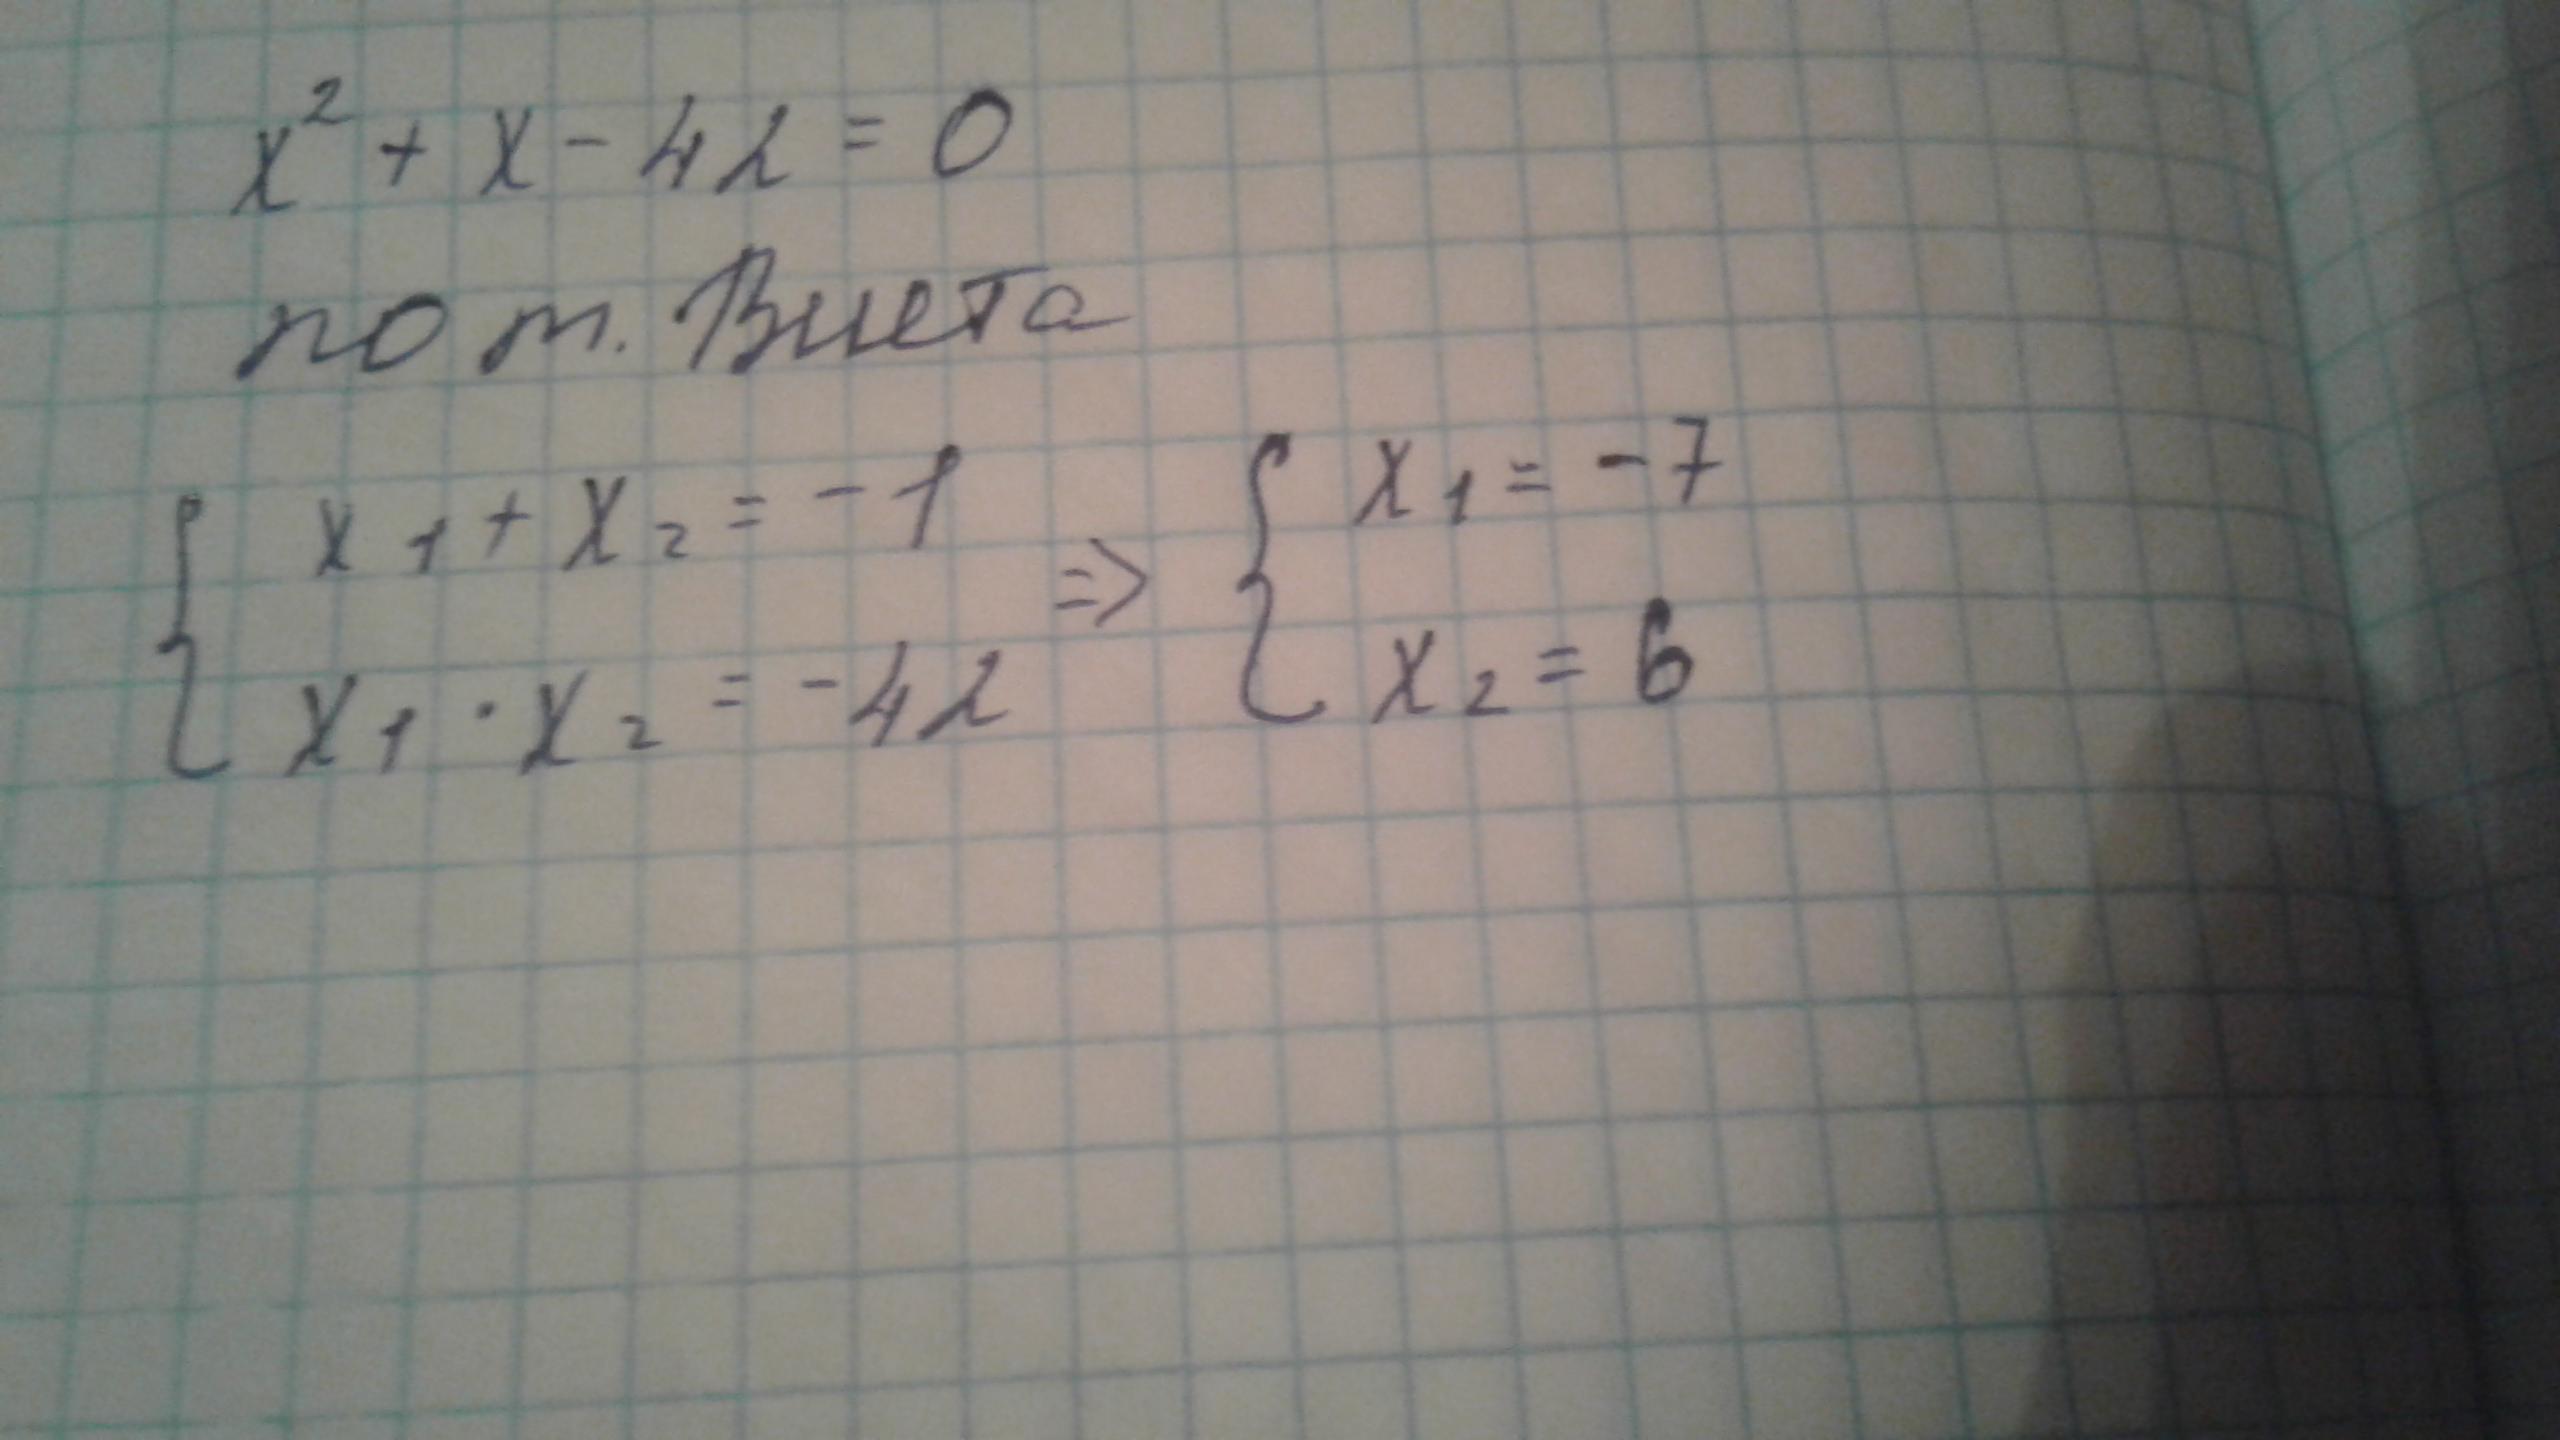 x² + x - 42 = 0
по т. Виета
{ x₁ + x₂ = -1 => { x₁ = -7
{ x₁ · x₂ = -42 { x₂ = 6